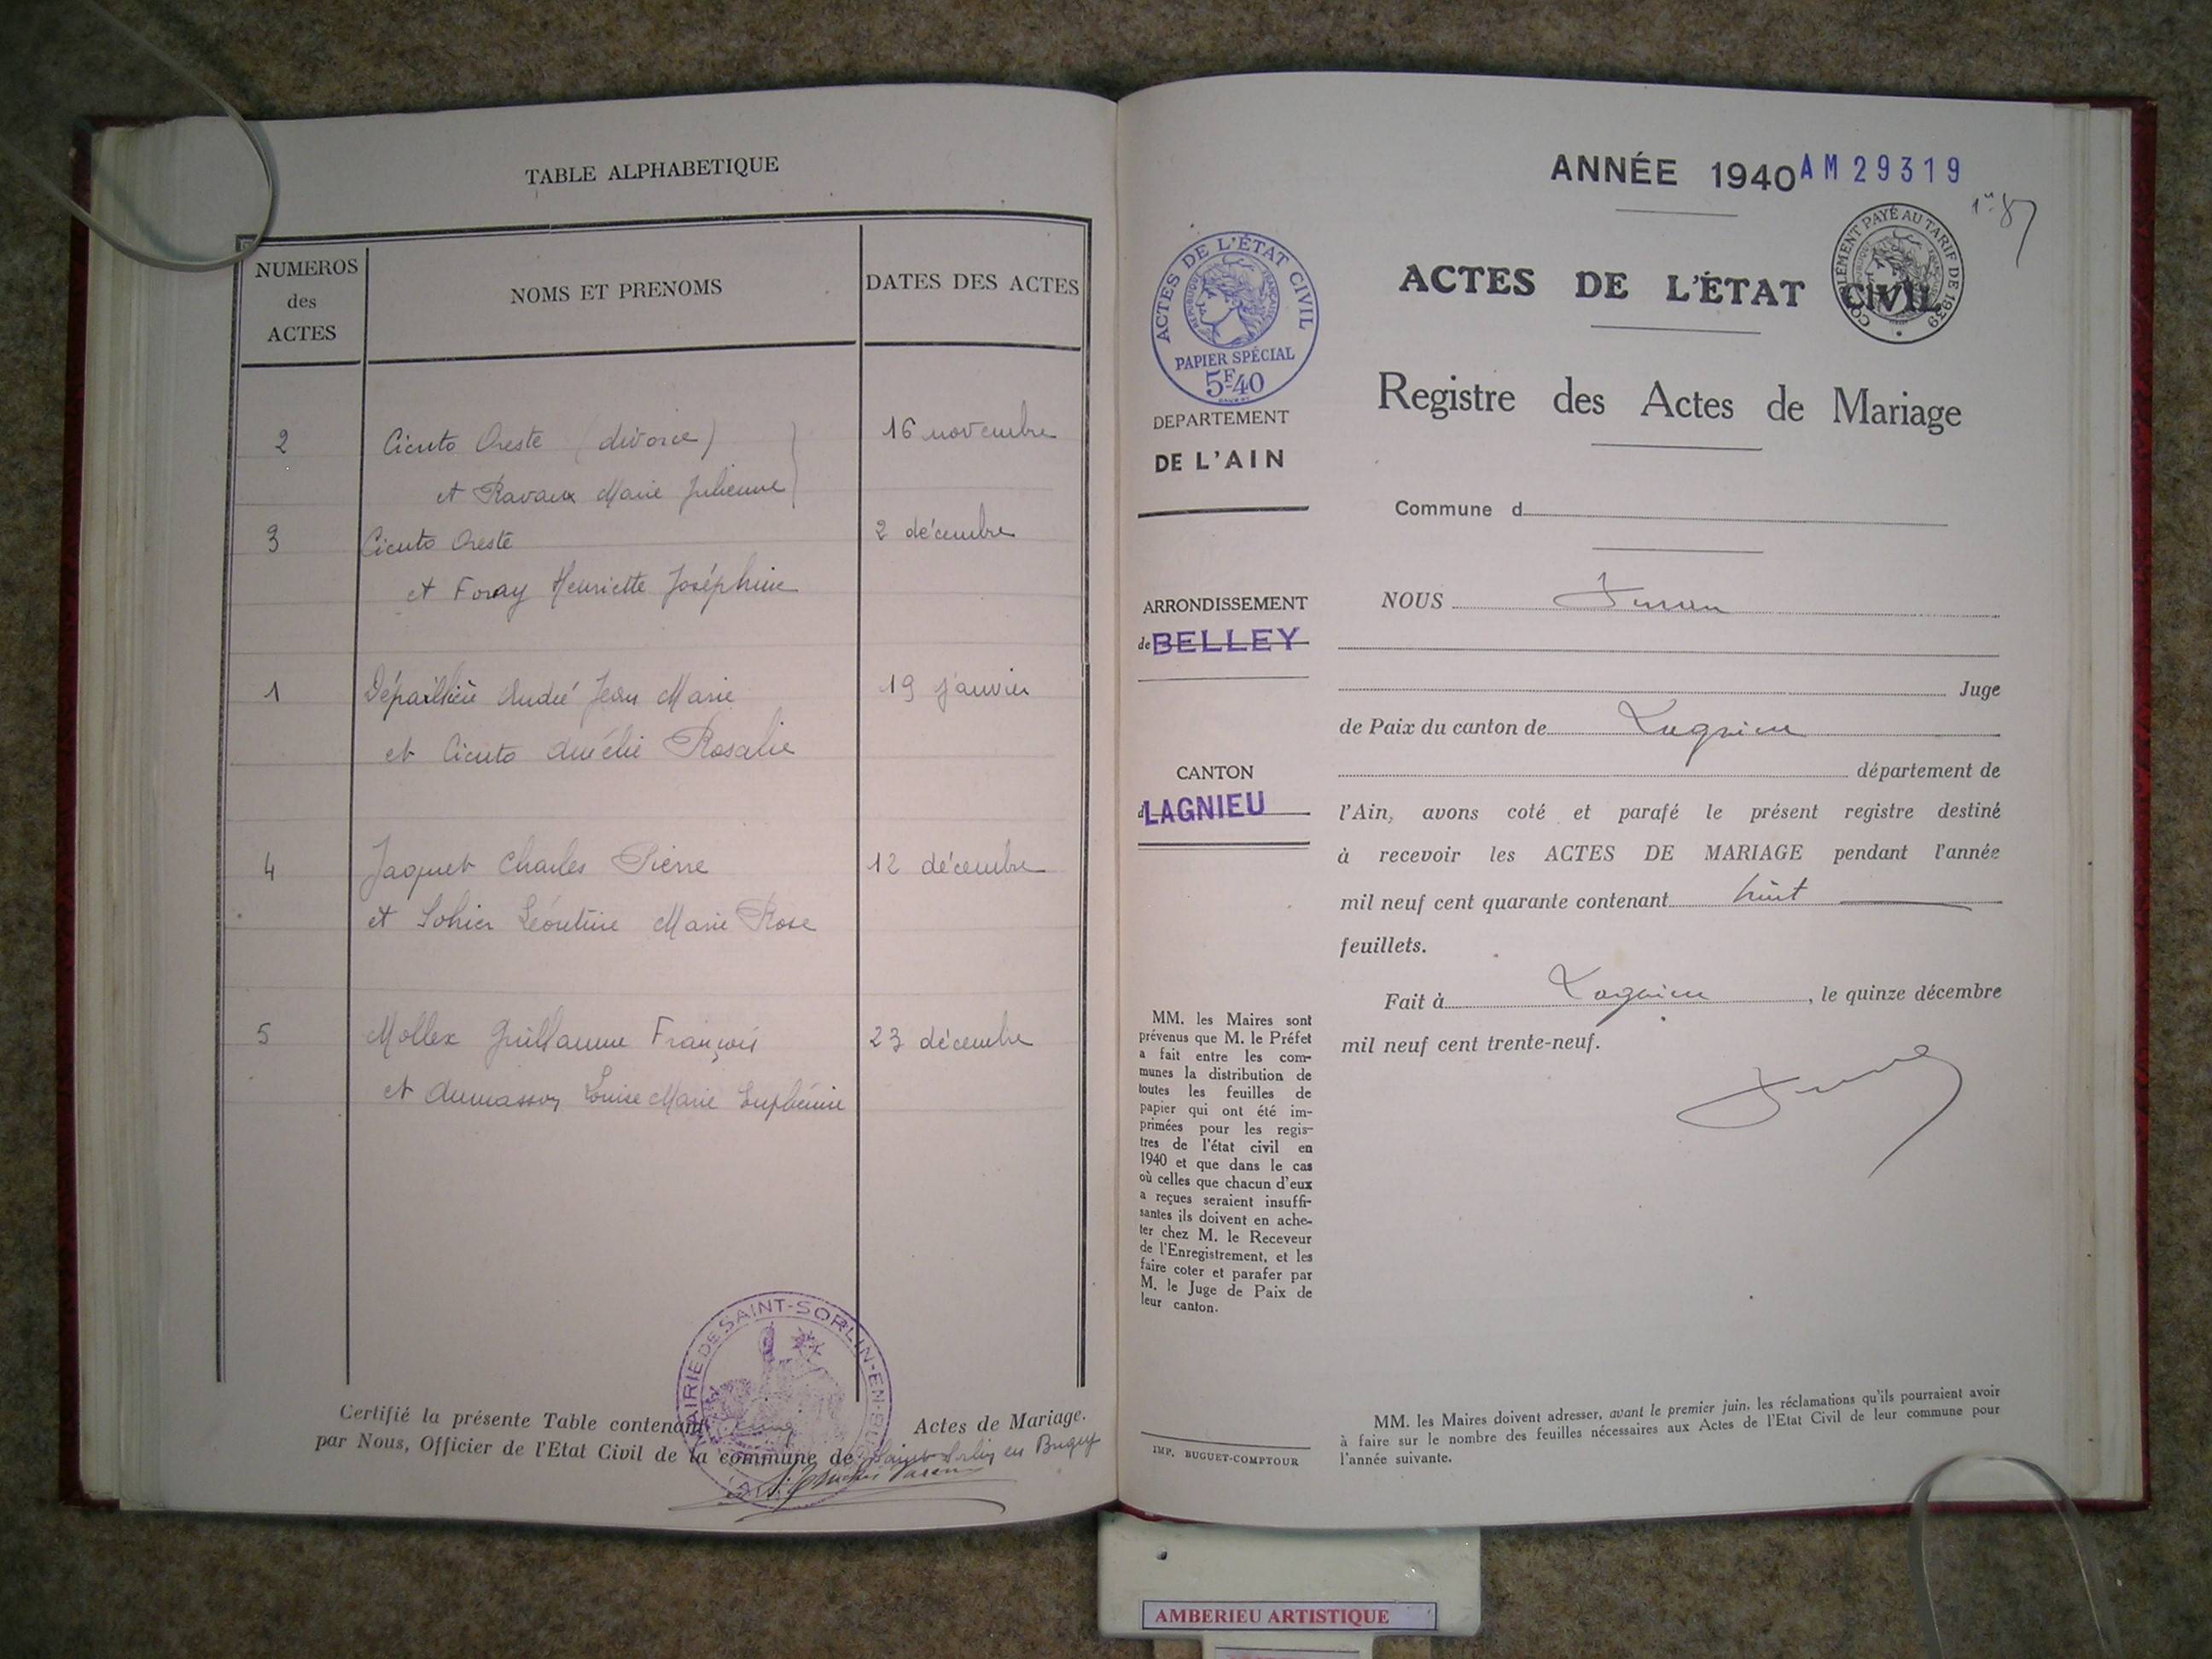 TABLE ALPHABETIQUE
NUMEROS des ACTES
NOMS ET PRENOMS
DATES DES ACTES
2 Cicuto Oreste (divorce) 16 novembre
et Ravaux Marie Julienne
3 Cicuto Oreste 2 décembre
et Foray Henriette Joséphine
1 André Jean Marie 19 janvier
et Cicuto Amélie Rosalie
4 Jaquet Charles Pierre 12 décembre
et Sohier Léontine Marie Rose
5 Mollex Guillaume François 23 décembre
et Dumasson Louise Marie
MAIRIE DE SAINT-SORLIN-EN-BUGEY
Certifié la présente Table contenant cinq Actes de Mariage.
par Nous, Officier de l'Etat Civil de la commune de Saint-Sorlin en Bugey
ANNÉE 1940 AM 29319
ACTES DE L'ÉTAT CIVIL
RÉPUBLIQUE FRANÇAISE
PAPIER SPÉCIAL
5F40
COMPLÉMENT PAYÉ AU TARIF DE 1939
ACTES DE L'ÉTAT CIVIL
Registre des Actes de Mariage
DEPARTEMENT
DE L'AIN
Commune d
ARRONDISSEMENT
de BELLEY
CANTON
d LAGNIEU
NOUS
Juge
de Paix du canton de Lagnieu
département de
l'Ain, avons coté et parafé le présent registre destiné
à recevoir les ACTES DE MARIAGE pendant l'année
mil neuf cent quarante contenant huit
feuillets.
Fait à Lagnieu, le quinze décembre
mil neuf cent trente-neuf.
MM. les Maires sont
prévenus que M. le Préfet
a fait entre les com-
munes la distribution de
toutes les feuilles de
papier qui ont été im-
primées pour les regis-
tres de l'état civil en
1940 et que dans le cas
où celles que chacun d'eux
a reçues seraient insuffi-
santes ils doivent en ache-
ter chez M. le Receveur
de l'Enregistrement, et les
faire coter et parafer par
M. le Juge de Paix de
leur canton.
IMP. BUGUET-COMPTOUR
MM. les Maires doivent adresser, avant le premier juin, les réclamations qu'ils pourraient avoir
à faire sur le nombre des feuilles nécessaires aux Actes de l'Etat Civil de leur commune pour
l'année suivante.
AMBERIEU ARTISTIQUE